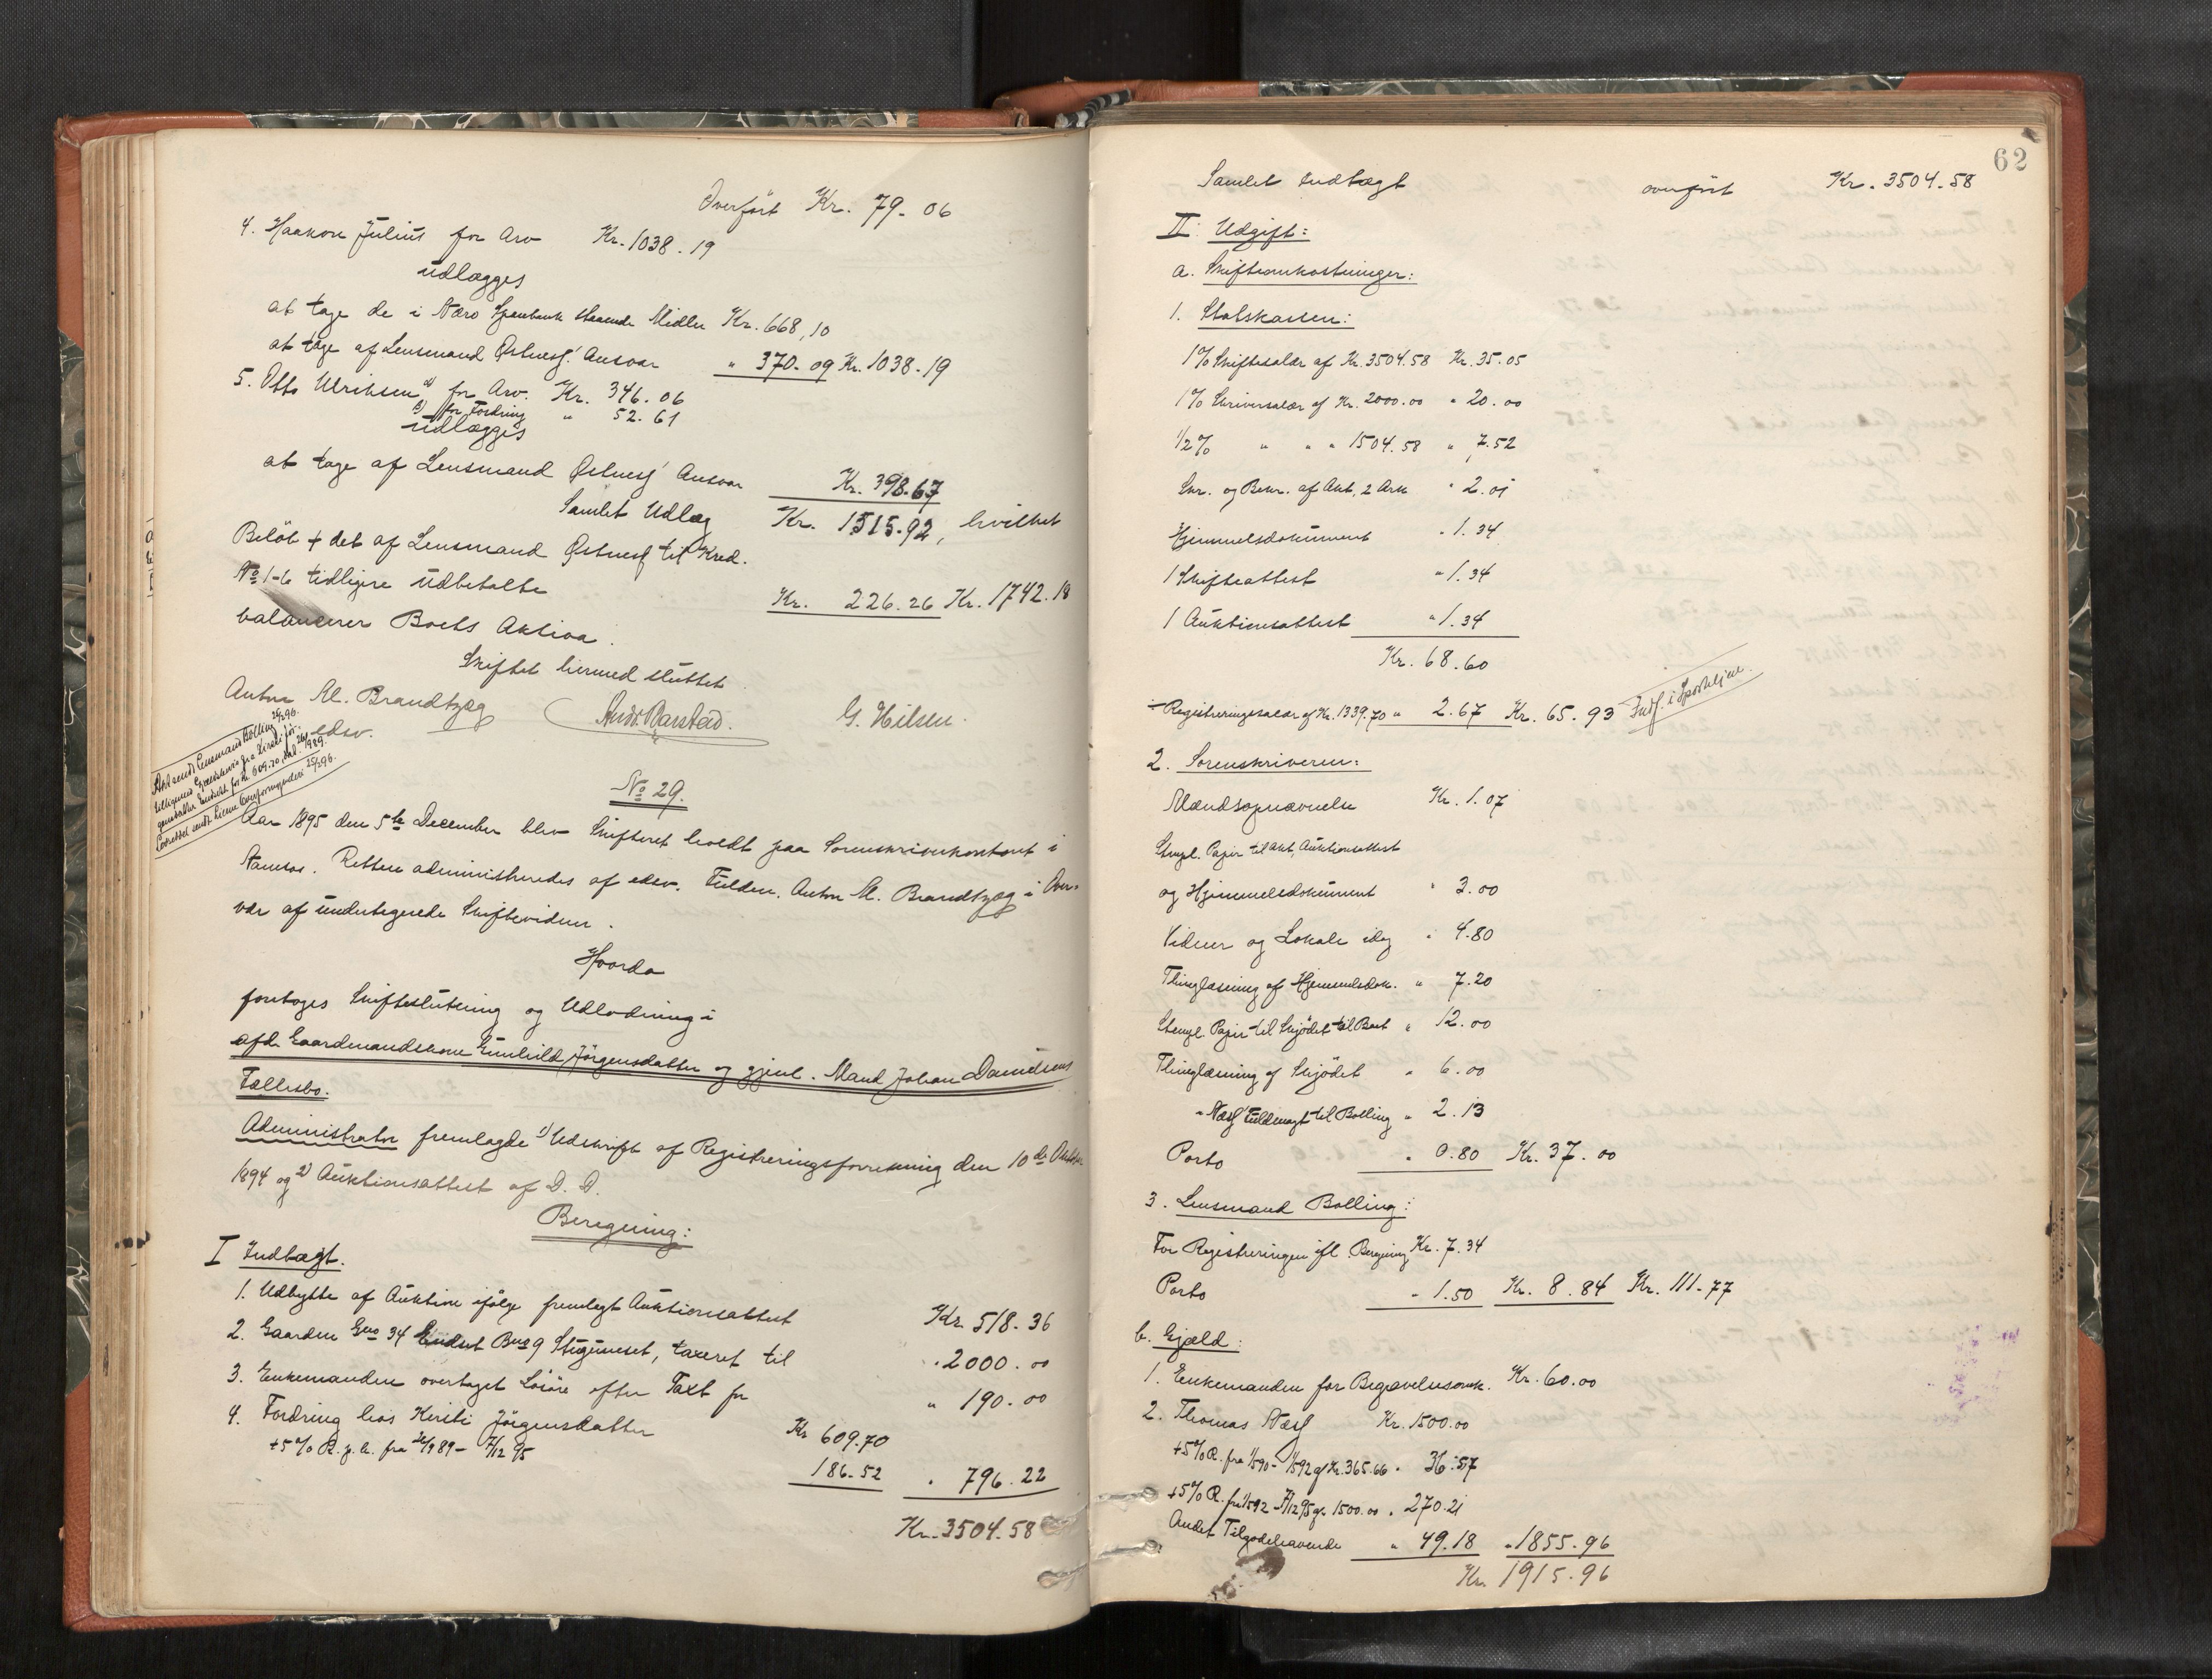 Overført Kr. 79. 06
4. Haakon Julius for Arv Kr. 1038. 19
udlægges
at tage de i Nærø Sparebank staaende Midler Kr. 668,10
at tage af Lensmand Ansvar " 370. 09 Kr. 1038. 19
5. Otto Ulriksen a) for Arv. Kr. 346. 06
b) for Fordring " 52. 61
udlægges
at tage af Lensmand Ansvar Kr. 398.67
Samlet Udlæg Kr. 1515.92, hvilket
Beløb + det af Lensmand til Kred.
No 1-6 tidligere udbetalte Kr. 226.26 Kr. 1742.18
balancerer Boets Aktiva.
Skiftet hermed sluttet
Anton M. Brandtzæg
edsv.
G. Nilsen.
No 29.
Aar 1895 den 5te December blev Skifteret holdt paa Sorenskriverkontoret i
Namsos. Retten administreredes af edsv. Fuldm. Anton M. Brandtzæg i Over-
vær af undertegnede Skiftevidner.
Hvorda
foretoges Skifteslutning og Udlodning i
afd. Gaardmandskone Gunhild Jørgensdatter og gjenl. Mand Johan Danielsens
Fællesbo.
Administrator fremlagde 1) Udskrift af Registreringsforretning den 10de Oktober
1894 og 2) Auktionsattest af D. D.
Beregning:
I Indtægt.
1. Udbytte af Auktion ifølge fremlagt Auktionsattest Kr. 518. 36
2. Gaarden Gno 34 Bno 9 taxeret til " 2000. 00
3. Enkemanden overtaget Løsøre efter Taxt for " 190. 00
4. Fordring hos Kirsti Jørgensdatter Kr 609.70
+5% R. p. a. fra 89 - 12 95 186.52 " 796. 22
Kr. 3504. 58
62
Samlet Indtægt overført Kr. 3504.58
II Udgift:
a. Skifteomkostninger:
1. Statskassen:
1% Skiftesalær af Kr. 3504.58 Kr. 35.05
1% Skriversalær af Kr. 2000.00 " 20.00
1/2% " " " 1504.58 " 7.52
Skr. og Bekr. af Akt, 2 Ark " 2.01
Hjemmelsdokument " 1.34
1 Skifteattest " 1.34
1 Auktionsattest " 1.34
Kr. 68.60
÷ Registreringssalær af Kr. 1339.70 " 2.67 Kr. 65.93 Indf. i
2. Sorenskriveren:
Mændsopnævnelse Kr. 1.07
Stempl. Papir til Akt, Auktionsattest
og Hjemmelsdokument " 3.00
Vidner og Lokale idag " 4.80
Thinglæsning af Hjemmelsdok. " 7.20
Stempl. Papir til Skjødet til Boet " 12.00
Thinglæsning af Skjødet " 6.00
" Næss' Fuldmagt til Bolling " 2.13
Porto " 0.80 Kr. 37.00
3. Lensmand Bolling:
For Registreringen ifl. Beregning Kr. 7.34
Porto " 1.50 Kr. 8.84 Kr. 111.77
b. Gjæld:
1. Enkemanden for Begravelsesomk. Kr. 60.00
2. Thomas Næss Kr. 1500.00
+5% R. fra 1/5 90 - 1/5 92 af Kr. 365.66 " 36.57
+5% R. fra 1/5 92 - 12 95 af " 1500.00 " 270.21
Andet Tilgodehavende " 49.18 " 1855.96
Kr. 1915.96